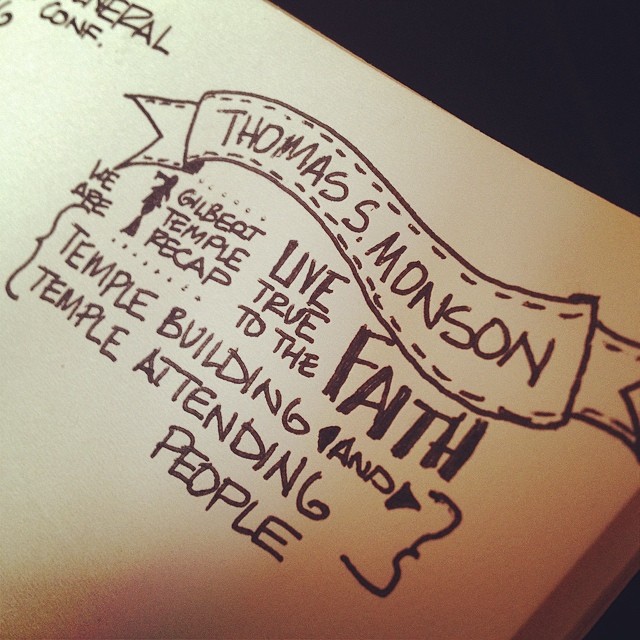 GENERAL
CONF.
THOMAS S. MONSON
GILBERT
TEMPLE
RECAP
LIVE
TRUE
TO THE
FAITH
WE
ARE
TEMPLE BUILDING AND
TEMPLE ATTENDING
PEOPLE